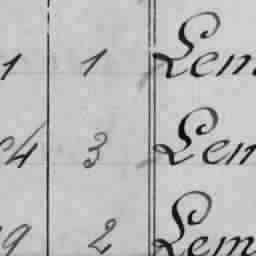 1 1 Lem
4 3 Lem
9 2 Lem